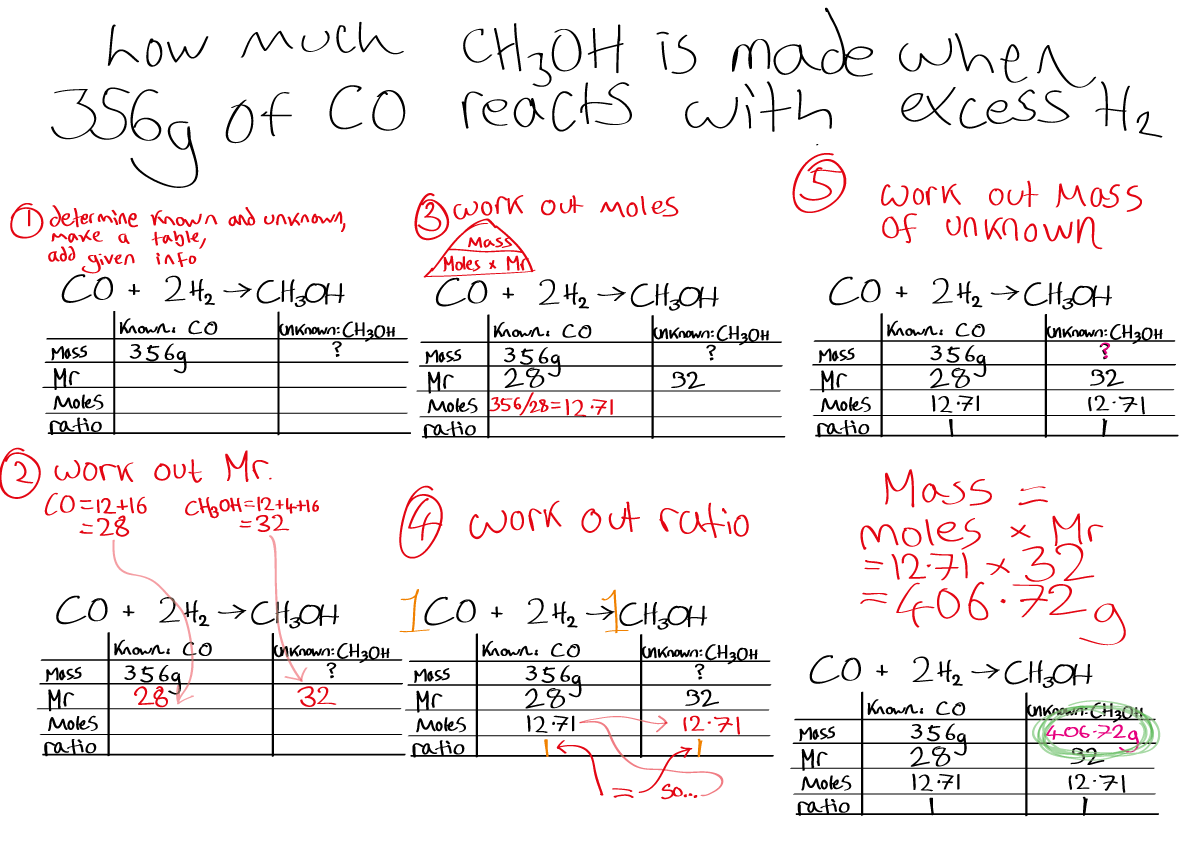 how much CH₃OH is made when
356g of CO reacts with excess H₂
① determine known and unknown,
make a table,
add given info
CO + 2H₂ → CH₃OH
Known: CO Unknown: CH₃OH
Mass 356g ?
Mr
Moles
ratio
② work out Mr.
CO=12+16
=28
CH₃OH=12+4+16
=32
CO + 2H₂ → CH₃OH
Known: CO Unknown: CH₃OH
Mass 356g ?
Mr 28 32
Moles
ratio
③ work out moles
Mass
Moles x Mr
CO + 2H₂ → CH₃OH
Known: CO Unknown: CH₃OH
Mass 356g ?
Mr 28 32
Moles 356/28=12.71
ratio
④ work out ratio
1CO + 2H₂ → 1CH₃OH
Known: CO Unknown: CH₃OH
Mass 356g ?
Mr 28 32
Moles 12.71 12.71
ratio 1 1
= so...
⑤ work out Mass
of unknown
CO + 2H₂ → CH₃OH
Known: CO Unknown: CH₃OH
Mass 356g ?
Mr 28 32
Moles 12.71 12.71
ratio 1 1
Mass =
moles x Mr
=12.71 x 32
=406.72g
CO + 2H₂ → CH₃OH
Known: CO Unknown: CH₃OH
Mass 356g 406.72g
Mr 28 32
Moles 12.71 12.71
ratio 1 1